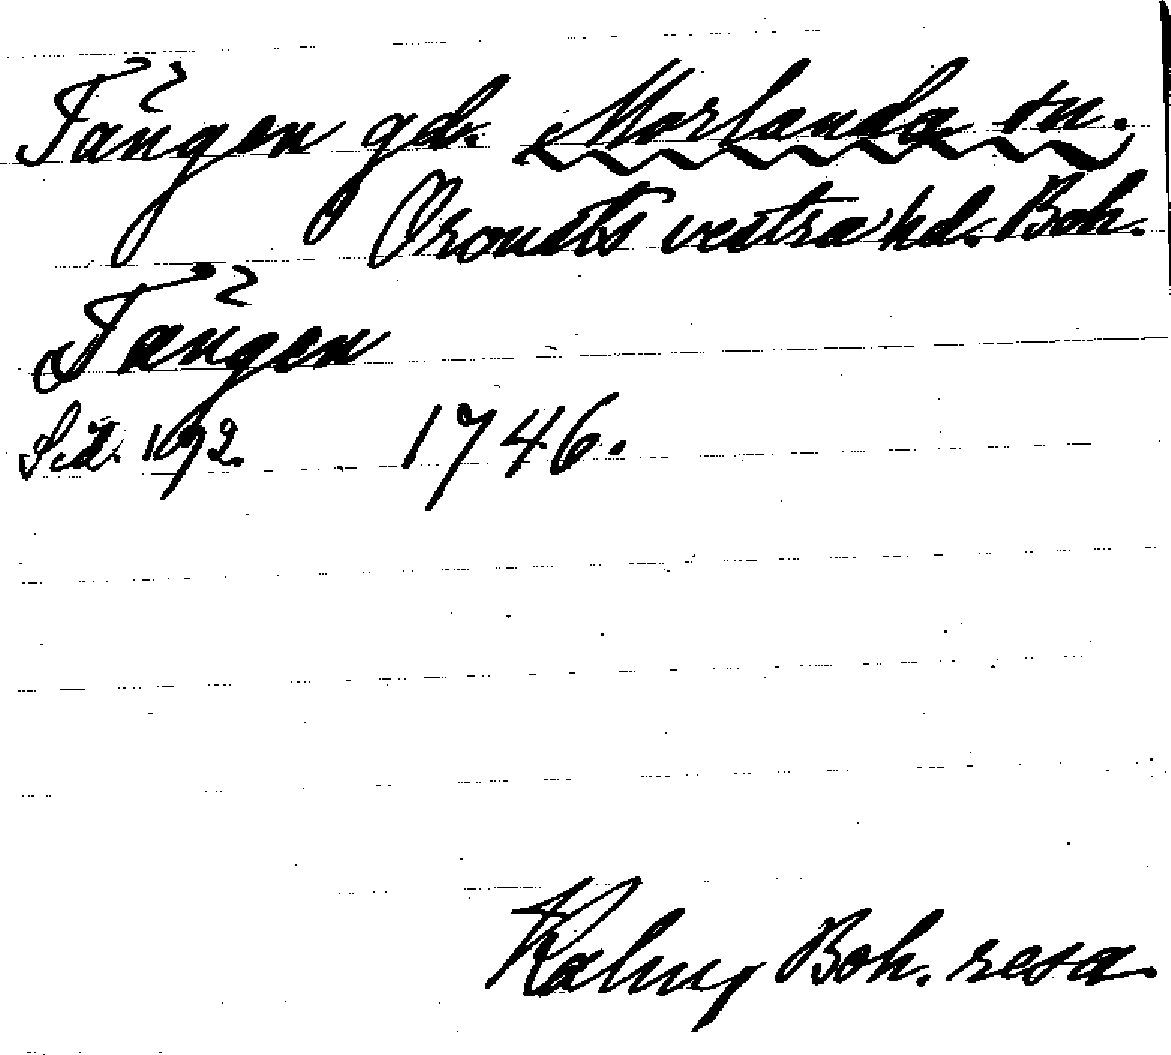 Tången gd. Morlanda sn.
Orousts vestra hd. Boh.
Tången
Sid. 192. 1746.
Kalms Boh. resa.